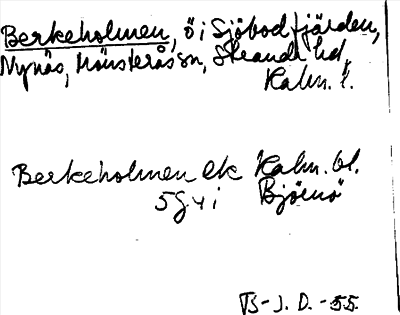 Berkeholmen, ö i Sjöbodfjärden,
Nynäs, Mönsterås sn, Stranda hd,
Kalm. l.
Berkeholmen ek Kalm. bl.
5g4i Björnö
TS-J. D. -55.